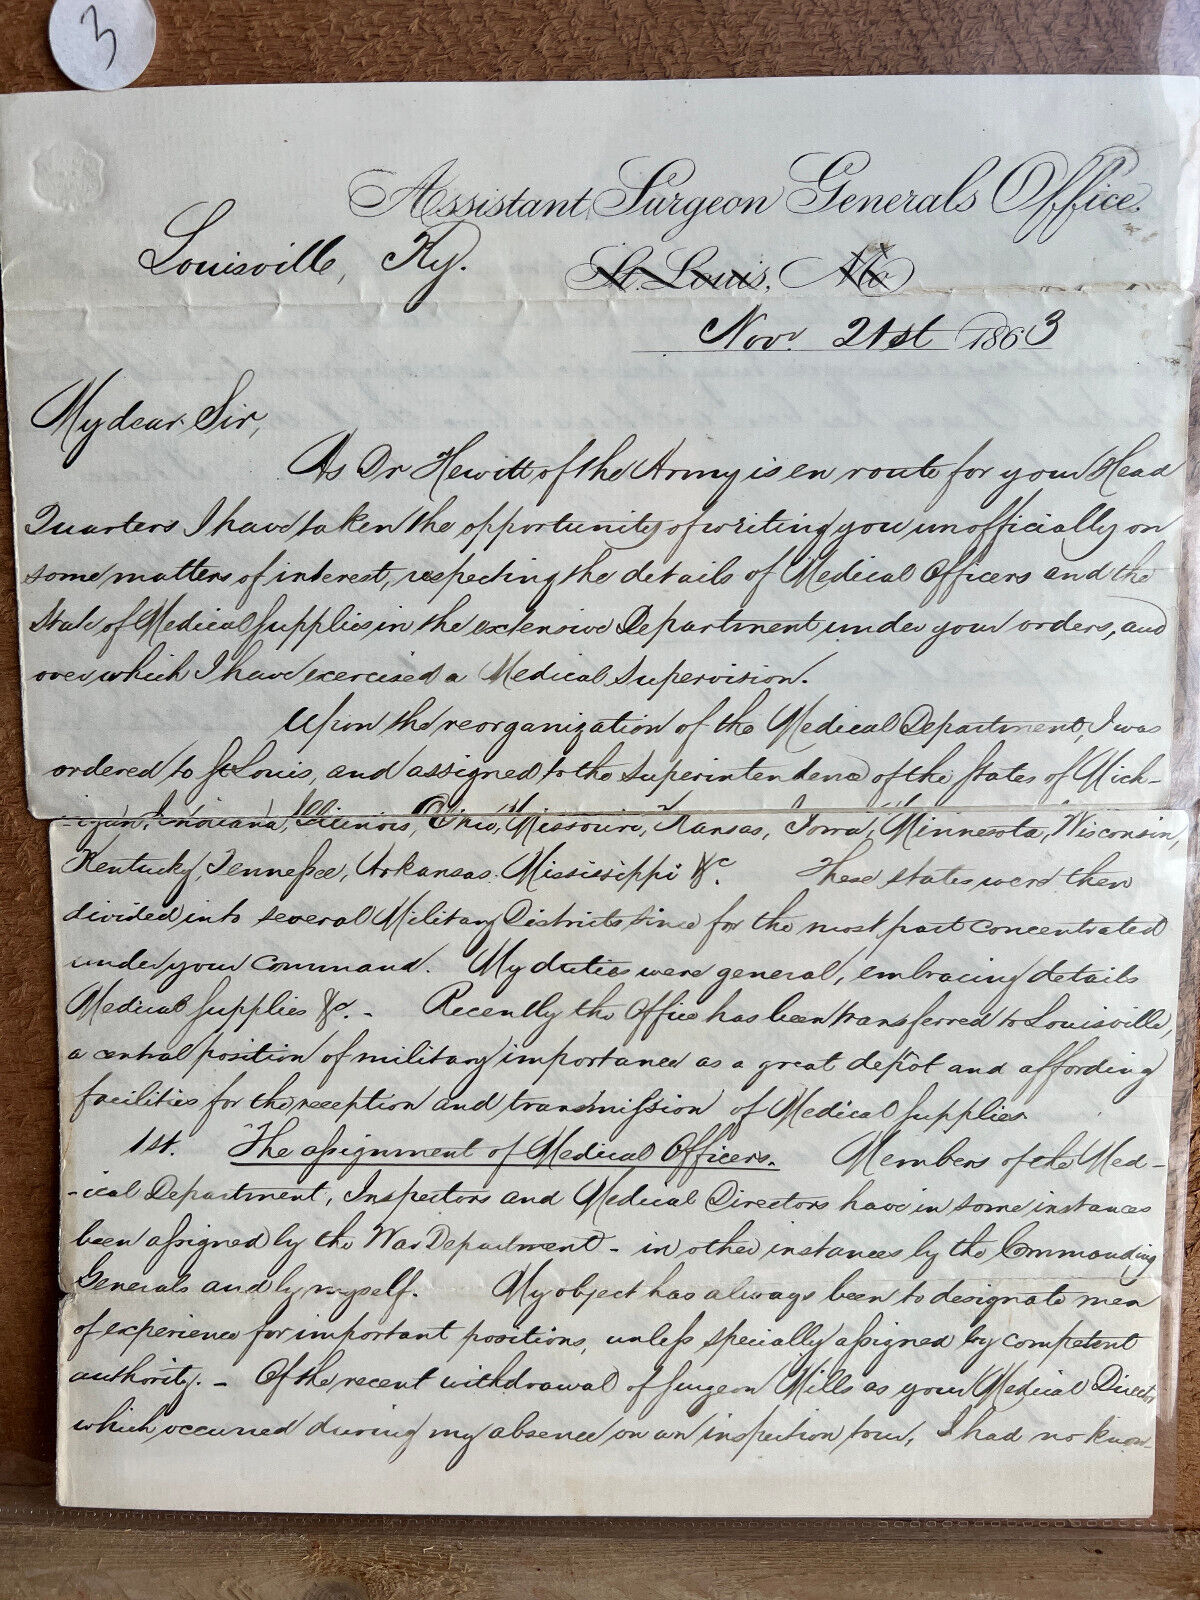 3
Assistant Surgeon Generals Office.
Louisville, Ky. St. Louis, Mo
Nov. 21st 1863
My dear Sir,
As Dr Hewitt of the Army is en route for your Head
Quarters I have taken the opportunity of writing you unofficially on
some matters of interest, respecting the details of Medical Officers and the
State of Medical Supplies in the extensive Department under your orders, and
over which I have exercised a Medical Supervision.
Upon the reorganization of the Medical Department, I was
ordered to St Louis, and assigned to the Superintendence of the States of Mich-
-igan, Indiana, Illinois, Ohio, Missouri, Kansas, Iowa, Minnesota, Wisconsin,
Kentucky, Tennessee, Arkansas. Mississippi &c. These states were then
divided into several Military Districts since for the most part concentrated
under your command. My duties were general, embracing details
Medical Supplies &c. - Recently the Office has been transferred to Louisville,
a central position of military importance as a great depôt and affording
facilities for the reception and transmission of Medical Supplies.
1st. The assignment of Medical Officers. Members of the Med-
-ical Department, Inspectors and Medical Directors have in some instances
been assigned by the War Department - in other instances by the Commanding
Generals and by myself. My object has always been to designate men
of experience for important positions, unless specially assigned by competent
authority. - Of the recent withdrawal of Surgeon Mills as your Medical Director
which occurred during my absence on an inspection tour, I had no know-